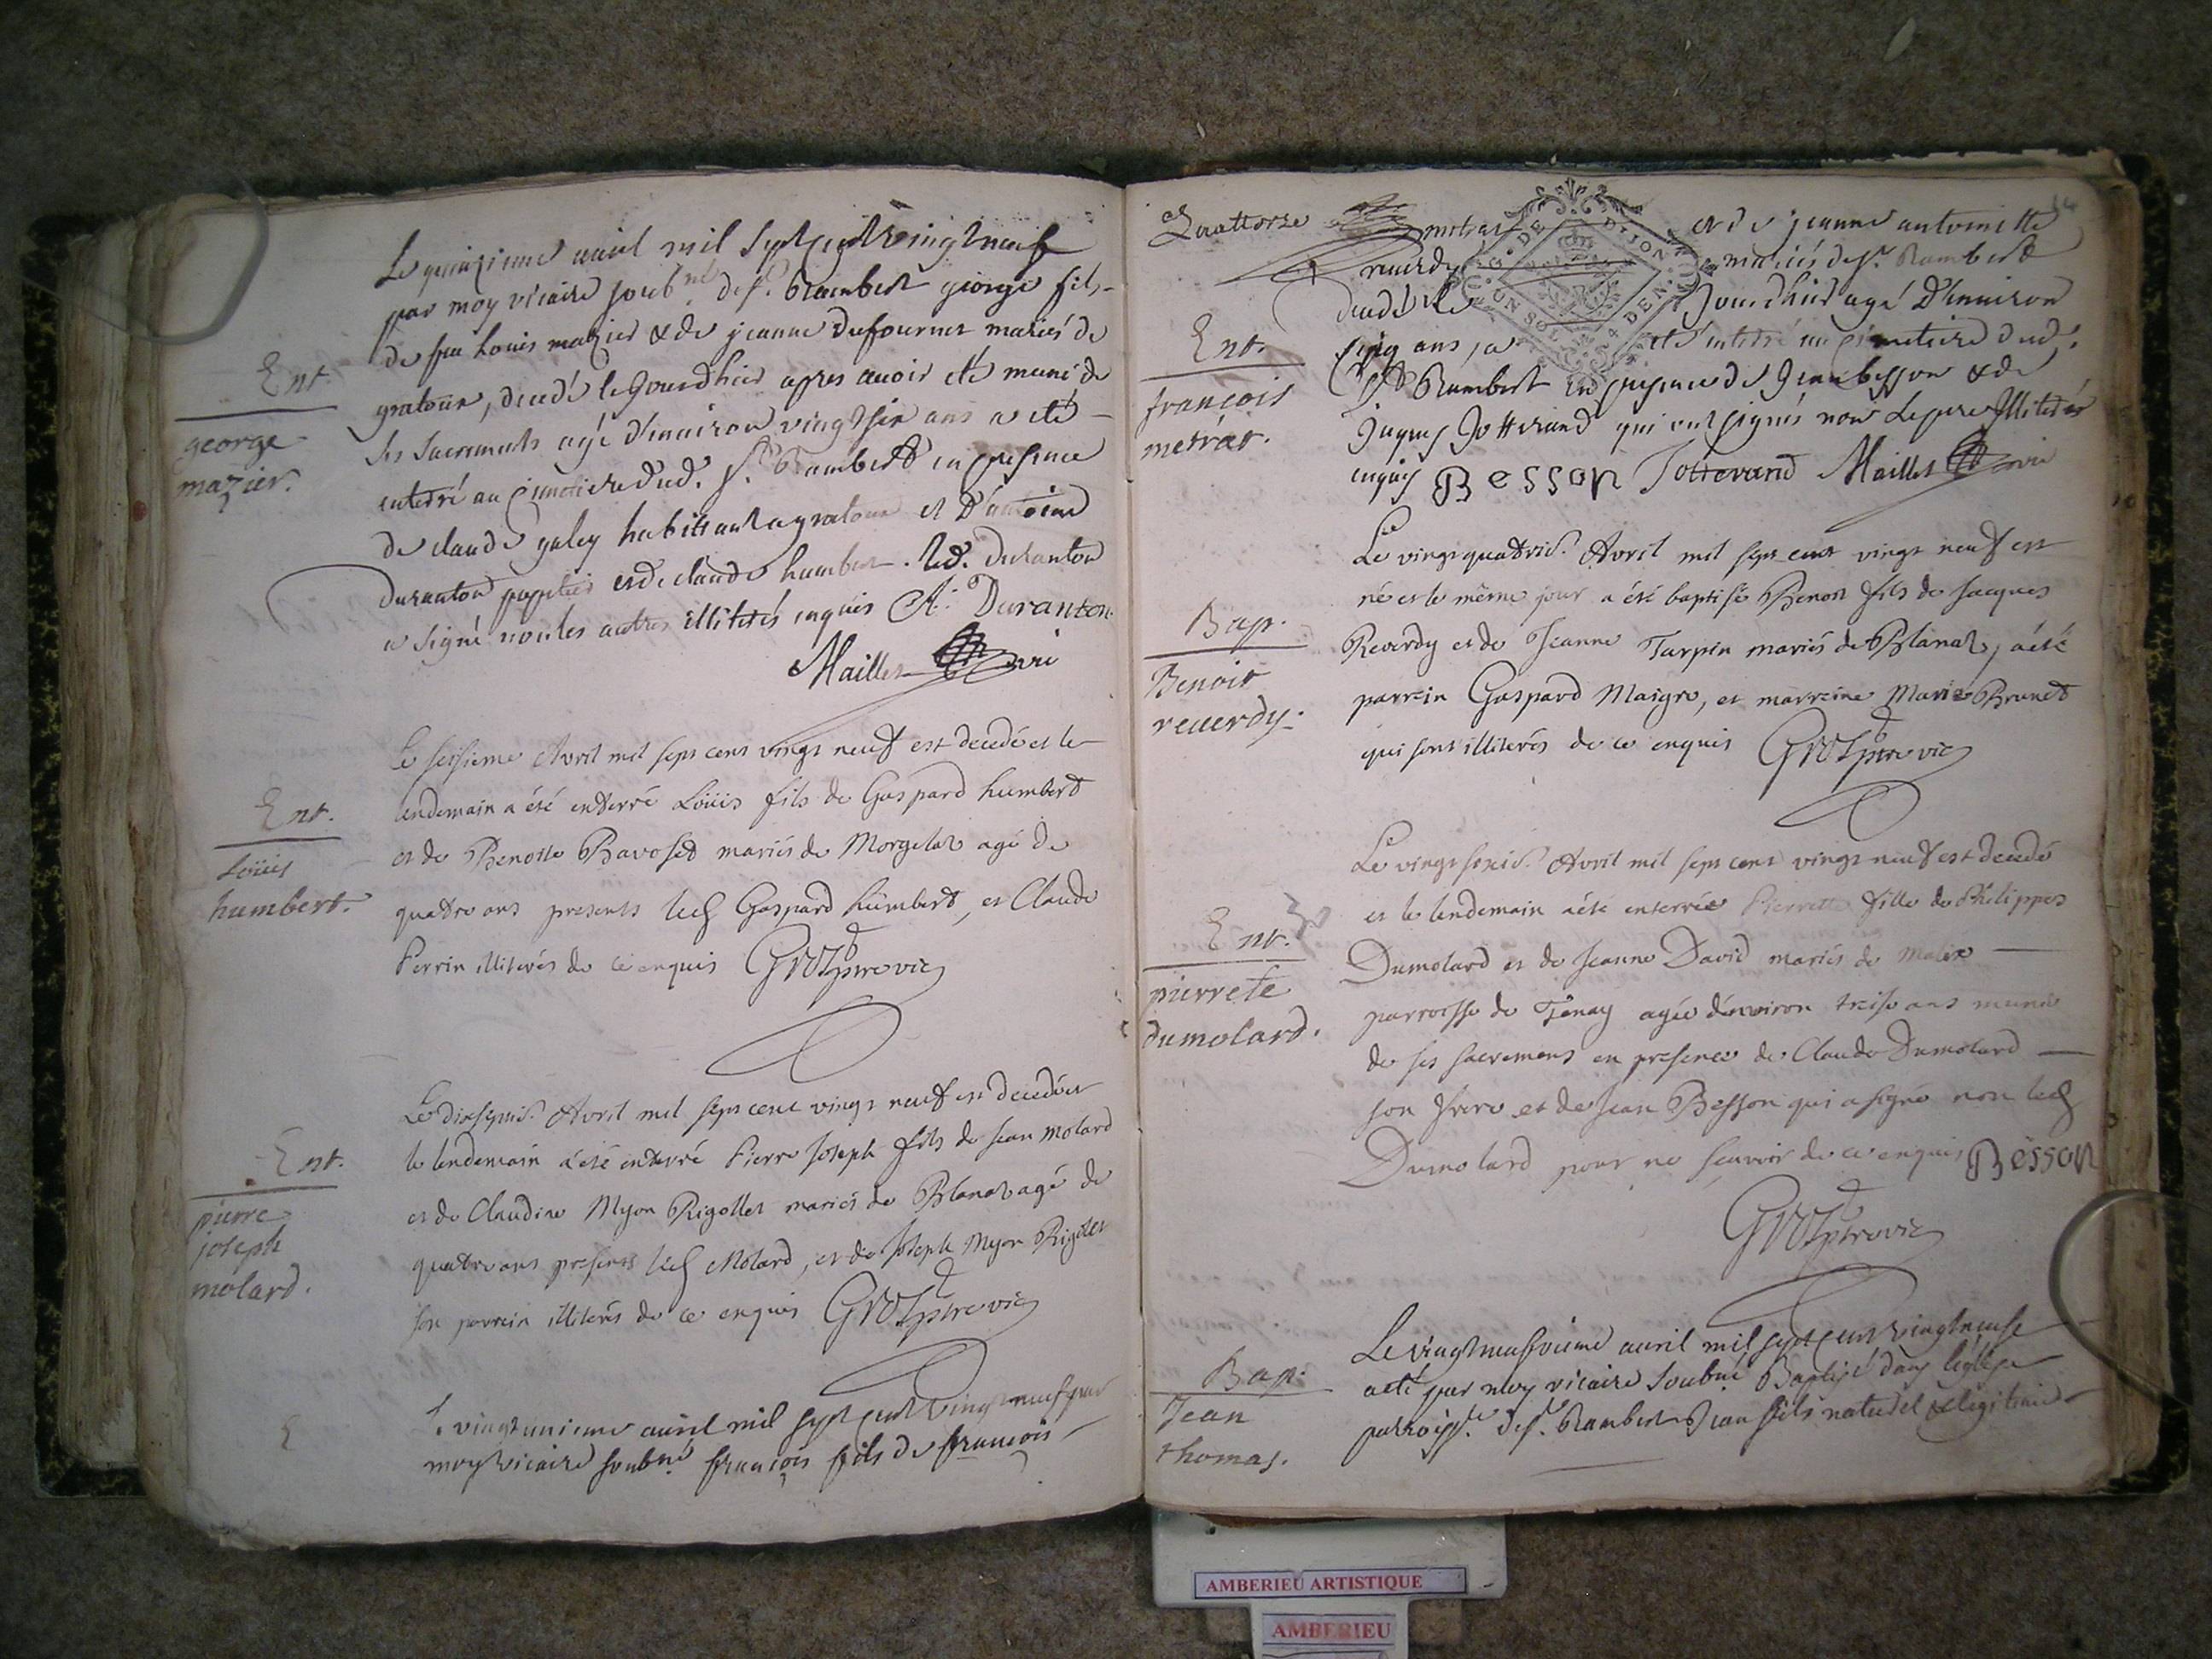 Le quinzieme avril mil sept cent vingt neuf
par moy vicaire soub.né de St. Rambert george fils
de feu Louis mazier & de jeanne Dufournet mariés de
gratoux, decedé le Jourdhier apres avoir été muni de
ses Sacrements agé d'environ vingt six ans a été
enterré au cimetiere dud. St. Rambert en presence
de claude galey habittant a gratoux et D'antoine
Duranton papetier et de claude humbert. Led. Duranton
a signé non les autres illiterés enquis A. Duranton
Maillet vic
Ent.
george
mazier.
Le seisieme Avril mil sept cent vingt neuf est decedé et le
lendemain a été enterré Loüis fils de Gaspard humbert
et de Benoite Bavoset mariés de Morgelas agé de
quatre ans presents led Gaspard humbert, et Claude
Perrin illiterés de ce enquis Grosptre vic
Ent.
Loüis
humbert.
Le dixsepti.e Avril mil sept cent vingt neuf est decedé et
le lendemain a été enterré Pierre Joseph fils de Jean Molard
et de Claudine Myon Rigollet mariés de Blanas agé de
quatre ans presents led Molard, et de Joseph Myon Rigolet
son parrein illiterés de ce enquis Grosptre vic
Ent.
pierre
joseph
molard.
Le vingtunieme avril mil sept cent vingt neuf par
moy vicaire soubné françois fils de françois
E
Quattorze
metras et de jeanne antoinette
reverdy mariés de St. Rambert
decedé le Jourdhier agé D'environ
cinq ans, a été enterré au cimetiere dud.
St. Rambert en presence de Jean besson & de
Jaques Jotterand qui ont signés non le pere Illiteré
enquis Besson Jotterand Maillet vic
G. DE DIJON
UN SOL 4 DEN.
Ent.
francois
metrat.
Le vingt quatrie. Avril mil sept cent vingt neuf est
né et le même jour a été baptisé Benoit fils de Jacques
Reverdy et de Jeanne Turpin mariés de Blanas, a été
parrein Gaspard Maigre, et marreine Marie Brunet
qui sont illiterés de ce enquis Grosptre vic
Bap.
Benoit
reverdy.
Le vingt sixie. Avril mil sept cent vingt neuf est decedé
et le lendemain a été enterrée Pierrette fille de Philippes
Dumolard et de Jeanne David mariés de Malix
parroisse de Tenay agée d'environ treise ans munie
de ses sacremens en presence de Claude Dumolard
son frere et de Jean Besson qui a signé non led
Dumolard pour ne scavoir de ce enquis Besson
Grosptre vic
Ent.
pierrete
dumolard.
Le vingt neufvieme avril mil sept cent vingt neufe
a été par moy vicaire soubné Baptisé dans l'eglise
parroiss.le de St. Rambert Jean fils naturel & legitime
Bap.
Jean
thomas.
AMBERIEU ARTISTIQUE
AMBERIEU